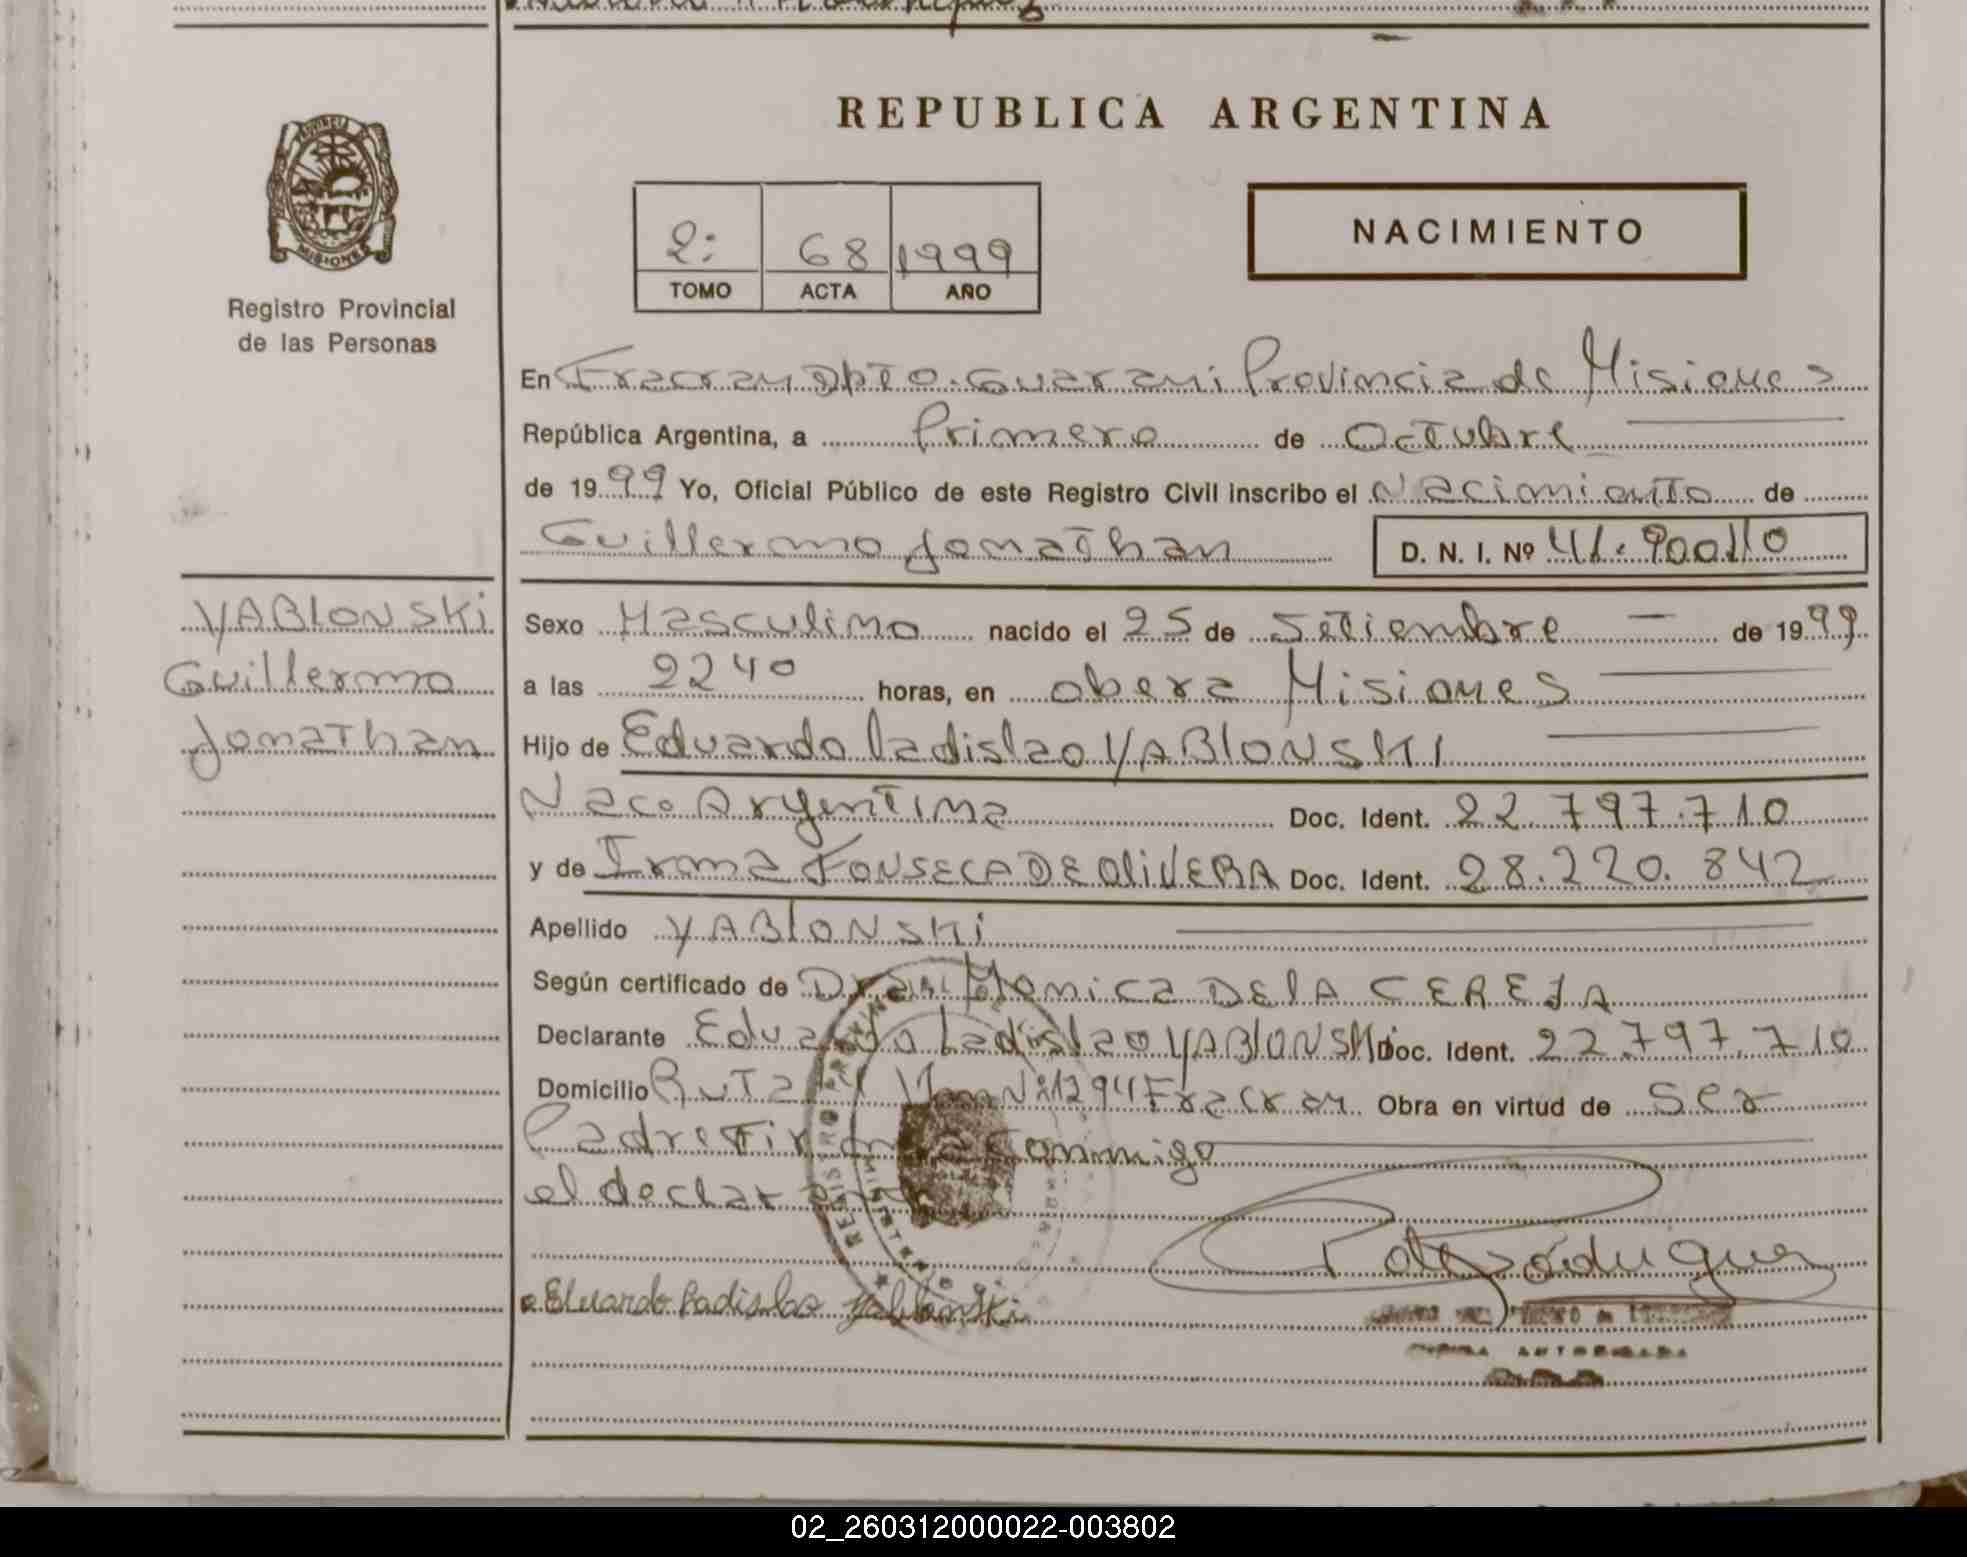 REPUBLICA ARGENTINA
PROVINCIA DE
MISIONES
Registro Provincial
de las Personas
2: 68 1999
TOMO ACTA AÑO
NACIMIENTO
En Fracran Dpto. Guarani Provincia de Misiones
República Argentina, a Primero de Octubre
de 1999 Yo, Oficial Público de este Registro Civil inscribo el Nacimiento de
Guillermo Jonathan D. N. I. Nº 41.900110
YABlONSKi
Guillermo
Jonathan
Sexo Masculino nacido el 25 de Setiembre de 1999
a las 2240 horas, en obera Misiones
Hijo de Eduardo ladislao YABlONSKI
Nac. Argentina Doc. Ident. 22.797.710
y de Irma FONSECA DE OliVERA Doc. Ident. 28.220.842
Apellido YABlONSKi
Según certificado de Dra. Monica DE lA CEREJA
Declarante Eduardo Ladislao YABlONSKi Doc. Ident. 22.797.710
Domicilio Ruta Nº 1294 Fracran Obra en virtud de Ser
Padre Firma Conmigo
el declarante
Eduardo Ladislao Yablonski
02_260312000022-003802